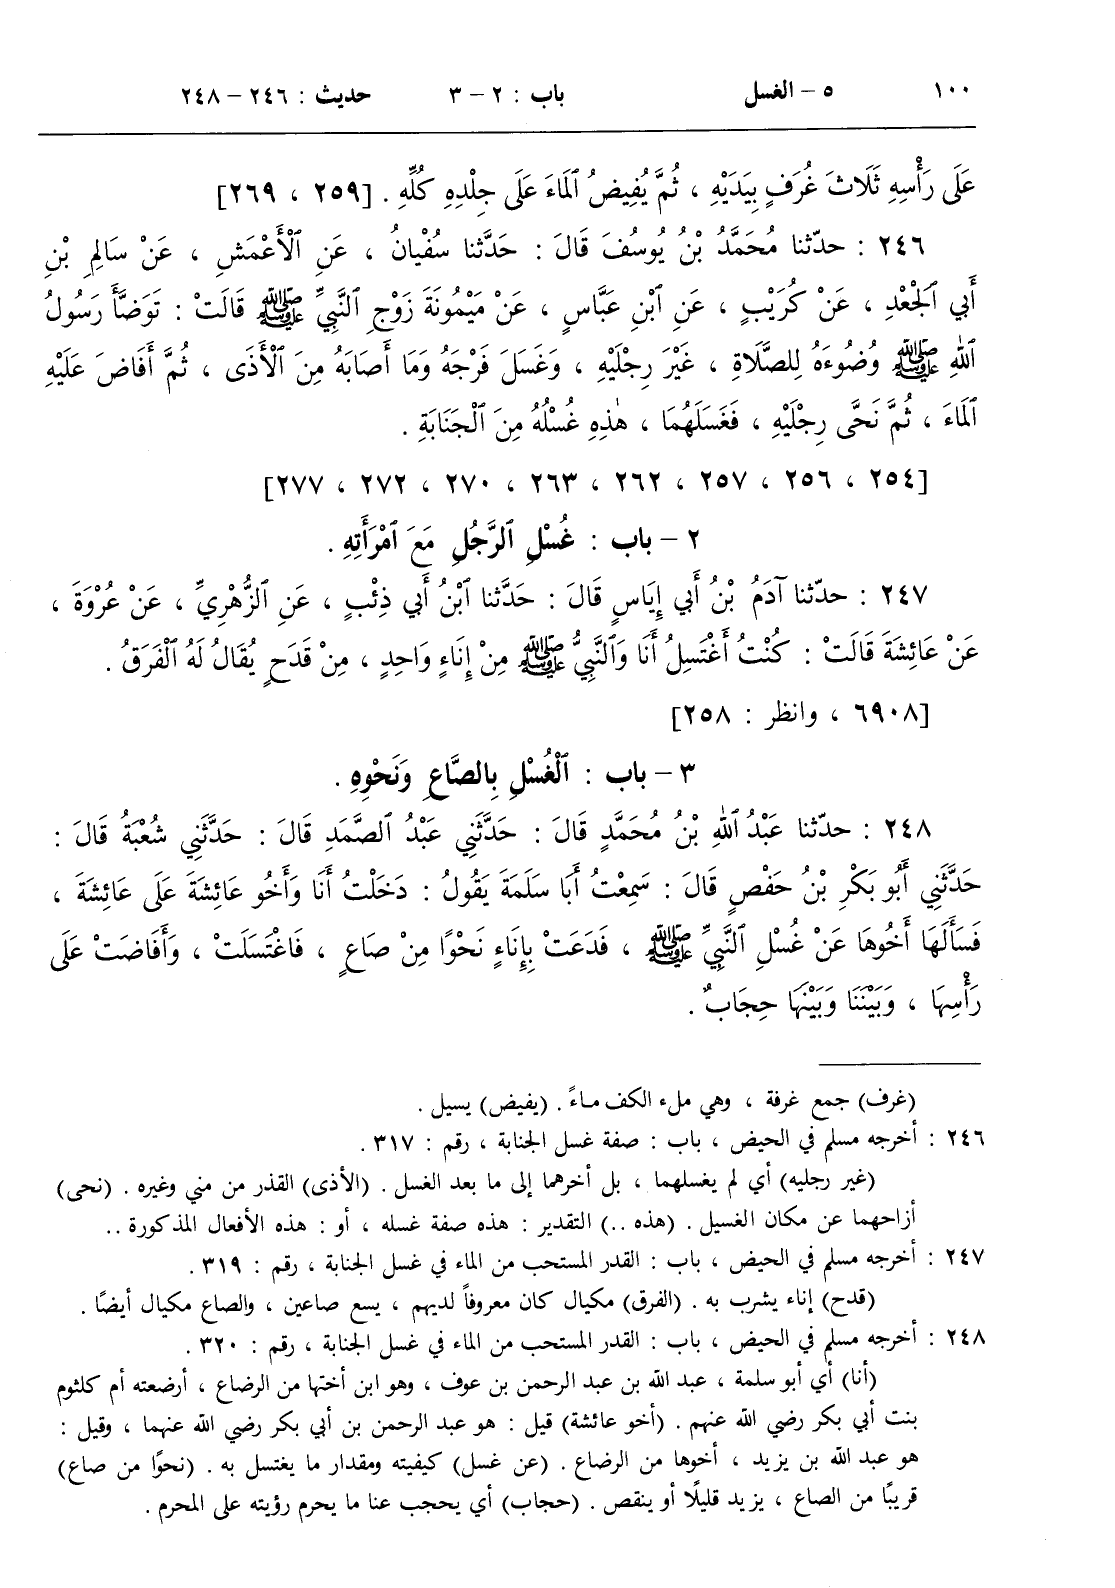 ١٠٠ ٥ - الغسل باب : ٢ - ٣ حديث : ٢٤٦ - ٢٤٨
عَلَى رَأْسِهِ ثَلَاثَ غُرَفٍ بِيَدَيْهِ ، ثُمَّ يُفِيضُ ٱلْمَاءَ عَلَى جِلْدِهِ كُلِّهِ . [٢٥٩ ، ٢٦٩]
٢٤٦ : حدّثنا مُحَمَّدُ بْنُ يُوسُفَ قَالَ : حَدَّثنا سُفْيَانُ ، عَنِ ٱلْأَعْمَشِ ، عَنْ سَالِمِ بْنِ
أَبِي ٱلْجَعْدِ ، عَنْ كُرَيْبٍ ، عَنِ ٱبْنِ عَبَّاسٍ ، عَنْ مَيْمُونَةَ زَوْجِ ٱلنَّبِيِّ ﷺ قَالَتْ : تَوَضَّأَ رَسُولُ
ٱللهِ ﷺ وُضُوءَهُ لِلصَّلَاةِ ، غَيْرَ رِجْلَيْهِ ، وَغَسَلَ فَرْجَهُ وَمَا أَصَابَهُ مِنَ ٱلْأَذَى ، ثُمَّ أَفَاضَ عَلَيْهِ
ٱلْمَاءَ ، ثُمَّ نَحَّى رِجْلَيْهِ ، فَغَسَلَهُمَا ، هٰذِهِ غُسْلُهُ مِنَ ٱلْجَنَابَةِ .
[٢٥٤ ، ٢٥٦ ، ٢٥٧ ، ٢٦٢ ، ٢٦٣ ، ٢٧٠ ، ٢٧٢ ، ٢٧٧]
٢ - باب : غُسْلِ ٱلرَّجُلِ مَعَ ٱمْرَأَتِهِ .
٢٤٧ : حدّثنا آدَمُ بْنُ أَبِي إِيَاسٍ قَالَ : حَدَّثنا ٱبْنُ أَبِي ذِئْبٍ ، عَنِ ٱلزُّهْرِيِّ ، عَنْ عُرْوَةَ ،
عَنْ عَائِشَةَ قَالَتْ : كُنْتُ أَغْتَسِلُ أَنَا وَٱلنَّبِيُّ ﷺ مِنْ إِنَاءٍ وَاحِدٍ ، مِنْ قَدَحٍ يُقَالُ لَهُ ٱلْفَرَقُ .
[٦٩٠٨ ، وانظر : ٢٥٨]
٣ - باب : ٱلْغُسْلِ بِالصَّاعِ وَنَحْوِهِ .
٢٤٨ : حدّثنا عَبْدُ ٱللهِ بْنُ مُحَمَّدٍ قَالَ : حَدَّثَنِي عَبْدُ ٱلصَّمَدِ قَالَ : حَدَّثَنِي شُعْبَةُ قَالَ :
حَدَّثَنِي أَبُو بَكْرِ بْنُ حَفْصٍ قَالَ : سَمِعْتُ أَبَا سَلَمَةَ يَقُولُ : دَخَلْتُ أَنَا وَأَخُو عَائِشَةَ عَلَى عَائِشَةَ ،
فَسَأَلَهَا أَخُوهَا عَنْ غُسْلِ ٱلنَّبِيِّ ﷺ ، فَدَعَتْ بِإِنَاءٍ نَحْوًا مِنْ صَاعٍ ، فَاغْتَسَلَتْ ، وَأَفَاضَتْ عَلَى
رَأْسِهَا ، وَبَيْنَنَا وَبَيْنَهَا حِجَابٌ .
(غرف) جمع غرفة ، وهي ملء الكف مـاءً . (يفيض) يسيل .
٢٤٦ : أخرجه مسلم في الحيض ، باب : صفة غسل الجنابة ، رقم : ٣١٧ .
(غير رجليه) أي لم يغسلهما ، بل أخرهما إلى ما بعد الغسل . (الأذى) القذر من مني وغيره . (نحى)
أزاحهما عن مكان الغسيل . (هذه ..) التقدير : هذه صفة غسله ، أو : هذه الأفعال المذكورة ..
٢٤٧ : أخرجه مسلم في الحيض ، باب : القدر المستحب من الماء في غسل الجنابة ، رقم : ٣١٩ .
(قدح) إناء يشرب به . (الفرق) مكيال كان معروفاً لديهم ، يسع صاعين ، والصاع مكيال أيضًا .
٢٤٨ : أخرجه مسلم في الحيض ، باب : القدر المستحب من الماء في غسل الجنابة ، رقم : ٣٢٠ .
(أنا) أي أبو سلمة ، عبد الله بن عبد الرحمن بن عوف ، وهو ابن أختها من الرضاع ، أرضعته أم كلثوم
بنت أبي بكر رضي الله عنهم . (أخو عائشة) قيل : هو عبد الرحمن بن أبي بكر رضي الله عنهما ، وقيل :
هو عبد الله بن يزيد ، أخوها من الرضاع . (عن غسل) كيفيته ومقدار ما يغتسل به . (نحوًا من صاع)
قريبًا من الصاع ، يزيد قليلًا أو ينقص . (حجاب) أي يحجب عنا ما يحرم رؤيته على المحرم .